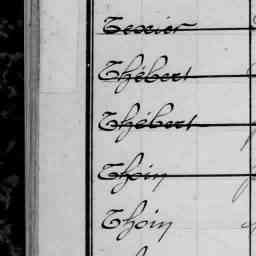 Texier
Thébert
Thébert
Thoin
Thoin